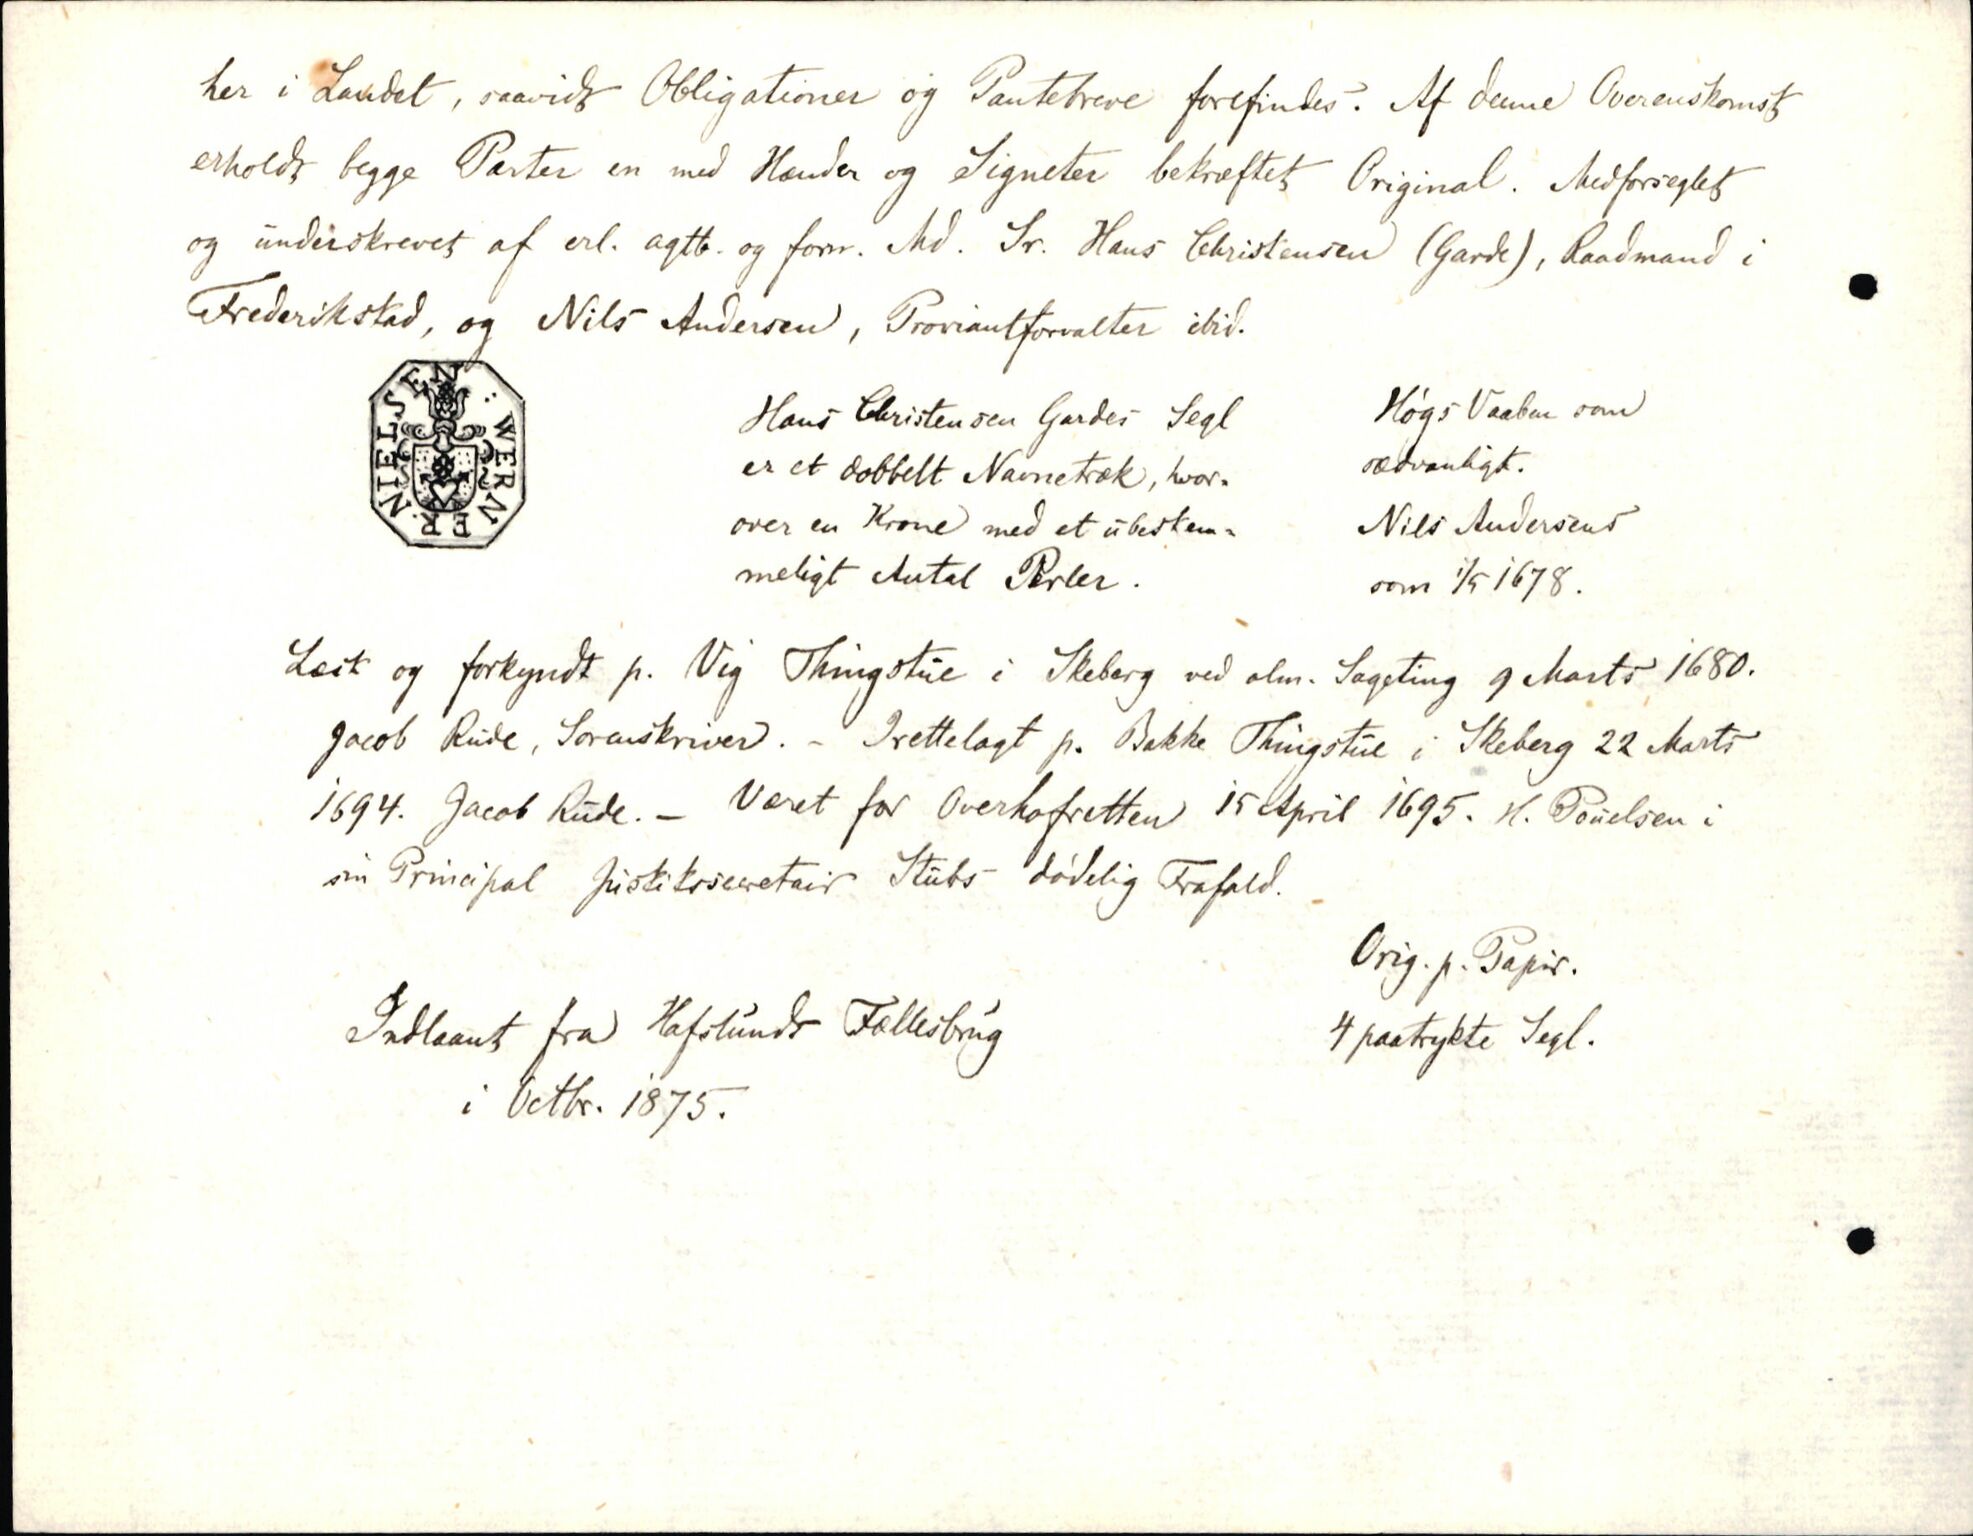 her i Landet, saavidt Obligationer og Pantebreve forefindes. Af denne Overenskomst
erholdt begge Parter en med Hænder og Signeter bekræftet Original. Medforseglet
og underskrevet af erl. agtb. og forn. Md. Sr. Hans Christensen (Garde), Raadmand i
Frederikstad, og Nils Andersen, Proviantforvalter ibid.
NIELSEN : WERNER
Hans Christensen Gardes Segl
er et dobbelt Navnetræk, hvor-
over en Krone med et ubestem-
meligt Antal Perler.
Høgs Vaaben som
sædvanligt.
Nils Andersens
som 1/5 1678.
Læst og forkyndt p. Vig Thingstue i Skeberg ved alm. Sageting 9 Marts 1680.
Jacob Rude, Sorenskriver. - Irettelagt p. Bakke Thingstue i Skeberg 22 Marts
1694. Jacob Rude. - Været for Overhofretten 15 April 1695. H. Pouelsen i
sin Principal Justitssecretair Stubs dødelig Frafald.
Orig. p. Papir.
4 paatrykte Segl.
Indlaant fra Hafslunds Fællesbrug
i Octbr. 1875.